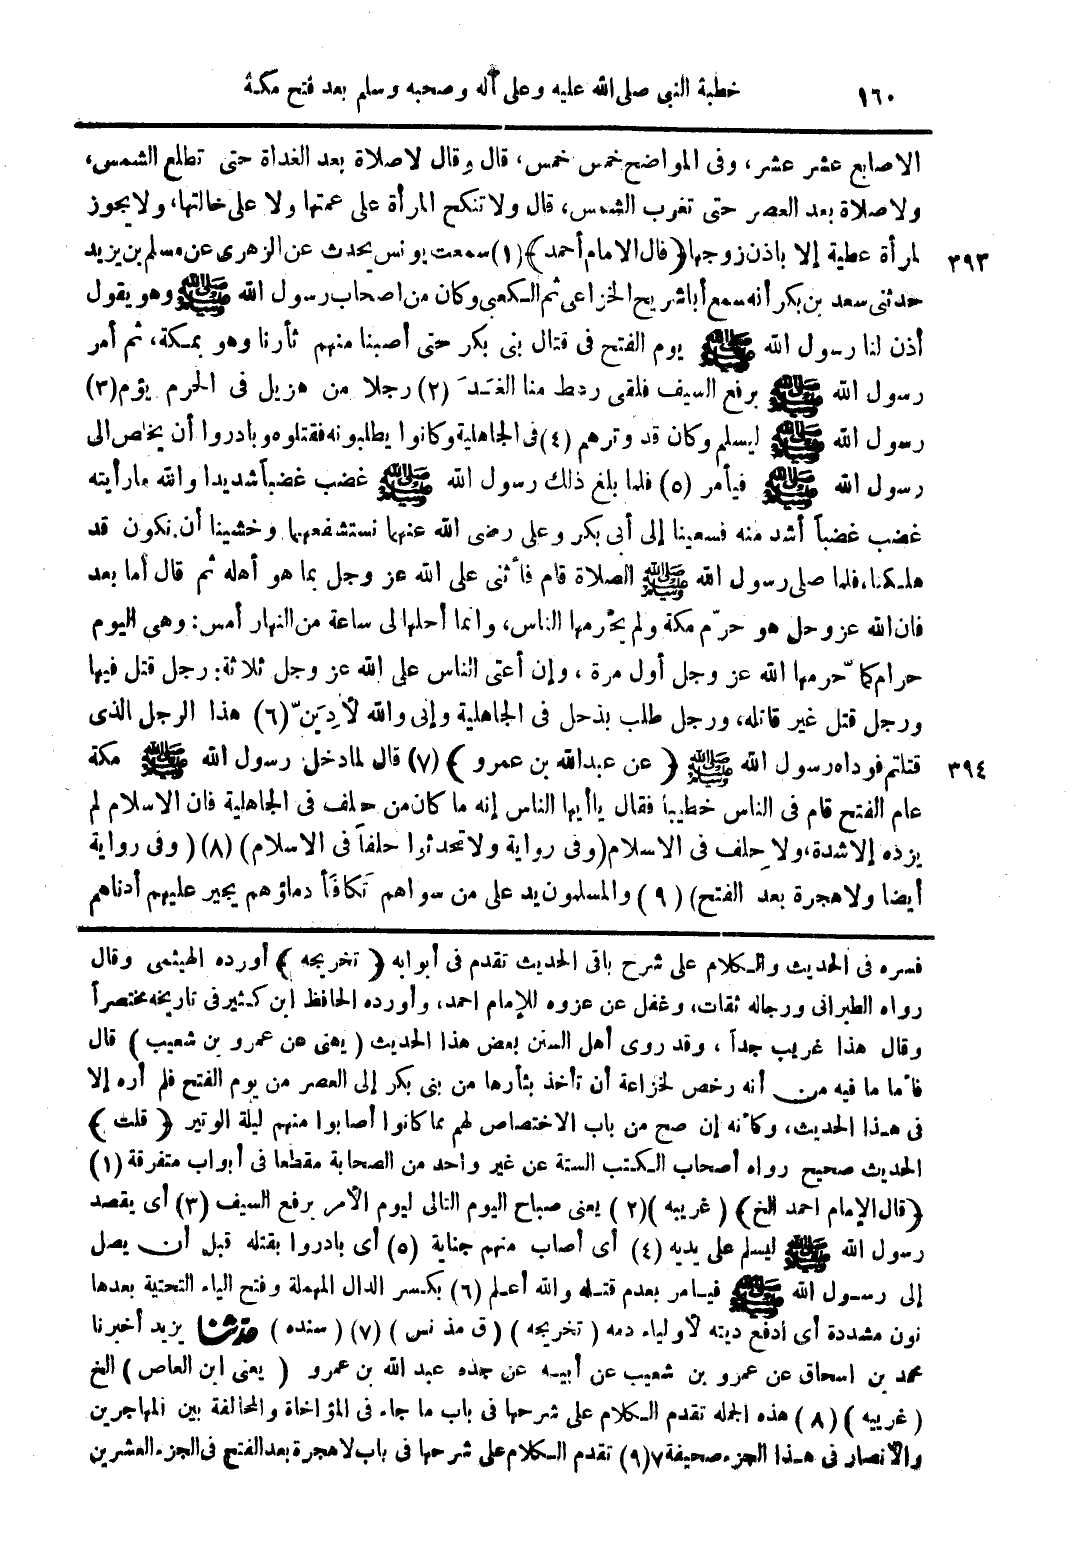 ١٦٠ خطبة النبى صلى الله عليه وعلى آله وصحبه وسلم بعد فتح مكة
الاصابع عشر عشر، وفى المواضح خمس خمس، قال وقال لاصلاة بعد الغداة حتى تطلع الشمس،
ولاصلاة بعد العصر حتى تغرب الشمس، قال ولاتنكح المرأة على عمتها ولا على خالتها، ولايجوز
٣٩٣ لمرأة عطية إلا باذن زوجها ﴿قال الامام أحمد﴾ (١) سمعت يونس يحدث عن الزهرى عن مسلم بن يزيد
حدثنى سعد بن بكر أنه سمع أبا شريح الخزاعى ثم الكعبى وكان من اصحاب رسول الله ﷺ وهو يقول
أذن لنا رسول الله ﷺ يوم الفتح فى قتال بنى بكر حتى أصبنا منهم ثأرنا وهو بمكة، ثم أمر
رسول الله ﷺ برفع السيف فلقى رهط منا الغَد َ (٢) رجلا من هزيل فى الحرم يؤم (٣)
رسول الله ﷺ ليسلم وكان قد وترهم (٤) فى الجاهلية وكانوا يطلبونه فقتلوه وبادروا أن يخلص الى
رسول الله ﷺ فيأمر (٥) فلما بلغ ذلك رسول الله ﷺ غضب غضباً شديدا والله مارأيته
غضب غضباً أشد منه فسعينا إلى أبى بكر وعلى رضى الله عنهما نستشفعهما وخشينا أن نكون قد
هلكنا، فلما صلى رسول الله ﷺ الصلاة قام فأثنى على الله عز وجل بما هو أهله ثم قال أما بعد
فان الله عز وجل هو حرّم مكة ولم يحرمها الناس، وانما أحلها لى ساعة من النهار أمس: وهى اليوم
حرام كما حرمها الله عز وجل أول مرة، وإن أعتى الناس على الله عز وجل ثلاثة: رجل قتل فيها
ورجل قتل غير قاتله، ورجل طلب بذحل فى الجاهلية وإنى والله لأَدِيَنّ (٦) هذا الرجل الذى
٣٩٤ قتلتم فوداه رسول الله ﷺ ﴿عن عبدالله بن عمرو﴾ (٧) قال لما دخل رسول الله ﷺ مكة
عام الفتح قام فى الناس خطيبا فقال ياأيها الناس إنه ما كان من حلف فى الجاهلية فان الاسلام لم
يزده إلا شدة، ولا حلف فى الاسلام (وفى رواية ولا تحدثوا حلفاً فى الاسلام) (٨) (وفى رواية
أيضا ولاهجرة بعد الفتح) (٩) والمسلمون يد على من سواهم تَكافَأ دماؤهم يجير عليهم أدناهم
فسره فى الحديث والكلام على شرح باقى الحديث تقدم فى أبوابه ﴿تخريجه﴾ أورده الهيثمى وقال
رواه الطبرانى ورجاله ثقات، وغفل عن عزوه للإمام احمد، وأورده الحافظ ابن كثير فى تاريخه مختصراً
وقال هذا غريب جداً، وقد روى أهل السنن بعض هذا الحديث (يعنى عن عمرو بن شعيب) قال
فأما ما فيه من أنه رخص لخزاعة أن تأخذ بثأرها من بنى بكر إلى العصر من يوم الفتح فلم أره إلا
فى هذا الحديث، وكأنه إن صح من باب الاختصاص لهم بما كانوا أصابوا منهم ليلة الوتير ﴿قلت﴾
الحديث صحيح رواه أصحاب الكتب الستة عن غير واحد من الصحابة مقطعا فى أبواب متفرقة (١)
﴿قال الإمام احمد الخ﴾ (غريبه) (٢) يعنى صباح اليوم التالى ليوم الأمر برفع السيف (٣) أى يقصد
رسول الله ﷺ ليسلم على يديه (٤) أى أصاب منهم جناية (٥) أى بادروا بقتله قبل أن يصل
إلى رسول الله ﷺ فيامر بعدم قتله والله أعلم (٦) بكسر الدال المهملة وفتح الياء التحتية بعدها
نون مشددة أى أدفع ديته لأولياء دمه (تخريجه) (ق مذ نس) (٧) (سنده) حدثنا يزيد أخبرنا
محمد بن اسحاق عن عمرو بن شعيب عن أبيه عن جده عبد الله بن عمرو (يعنى ابن العاص) الخ
(غريبه) (٨) هذه الجملة تقدم الكلام على شرحها فى باب ما جاء فى المؤاخاة والمحالفة بين المهاجرين
والأنصار فى هذا الجزء صحيفة ٧ (٩) تقدم الكلام على شرحها فى باب لاهجرة بعد الفتح فى الجزء العشرين